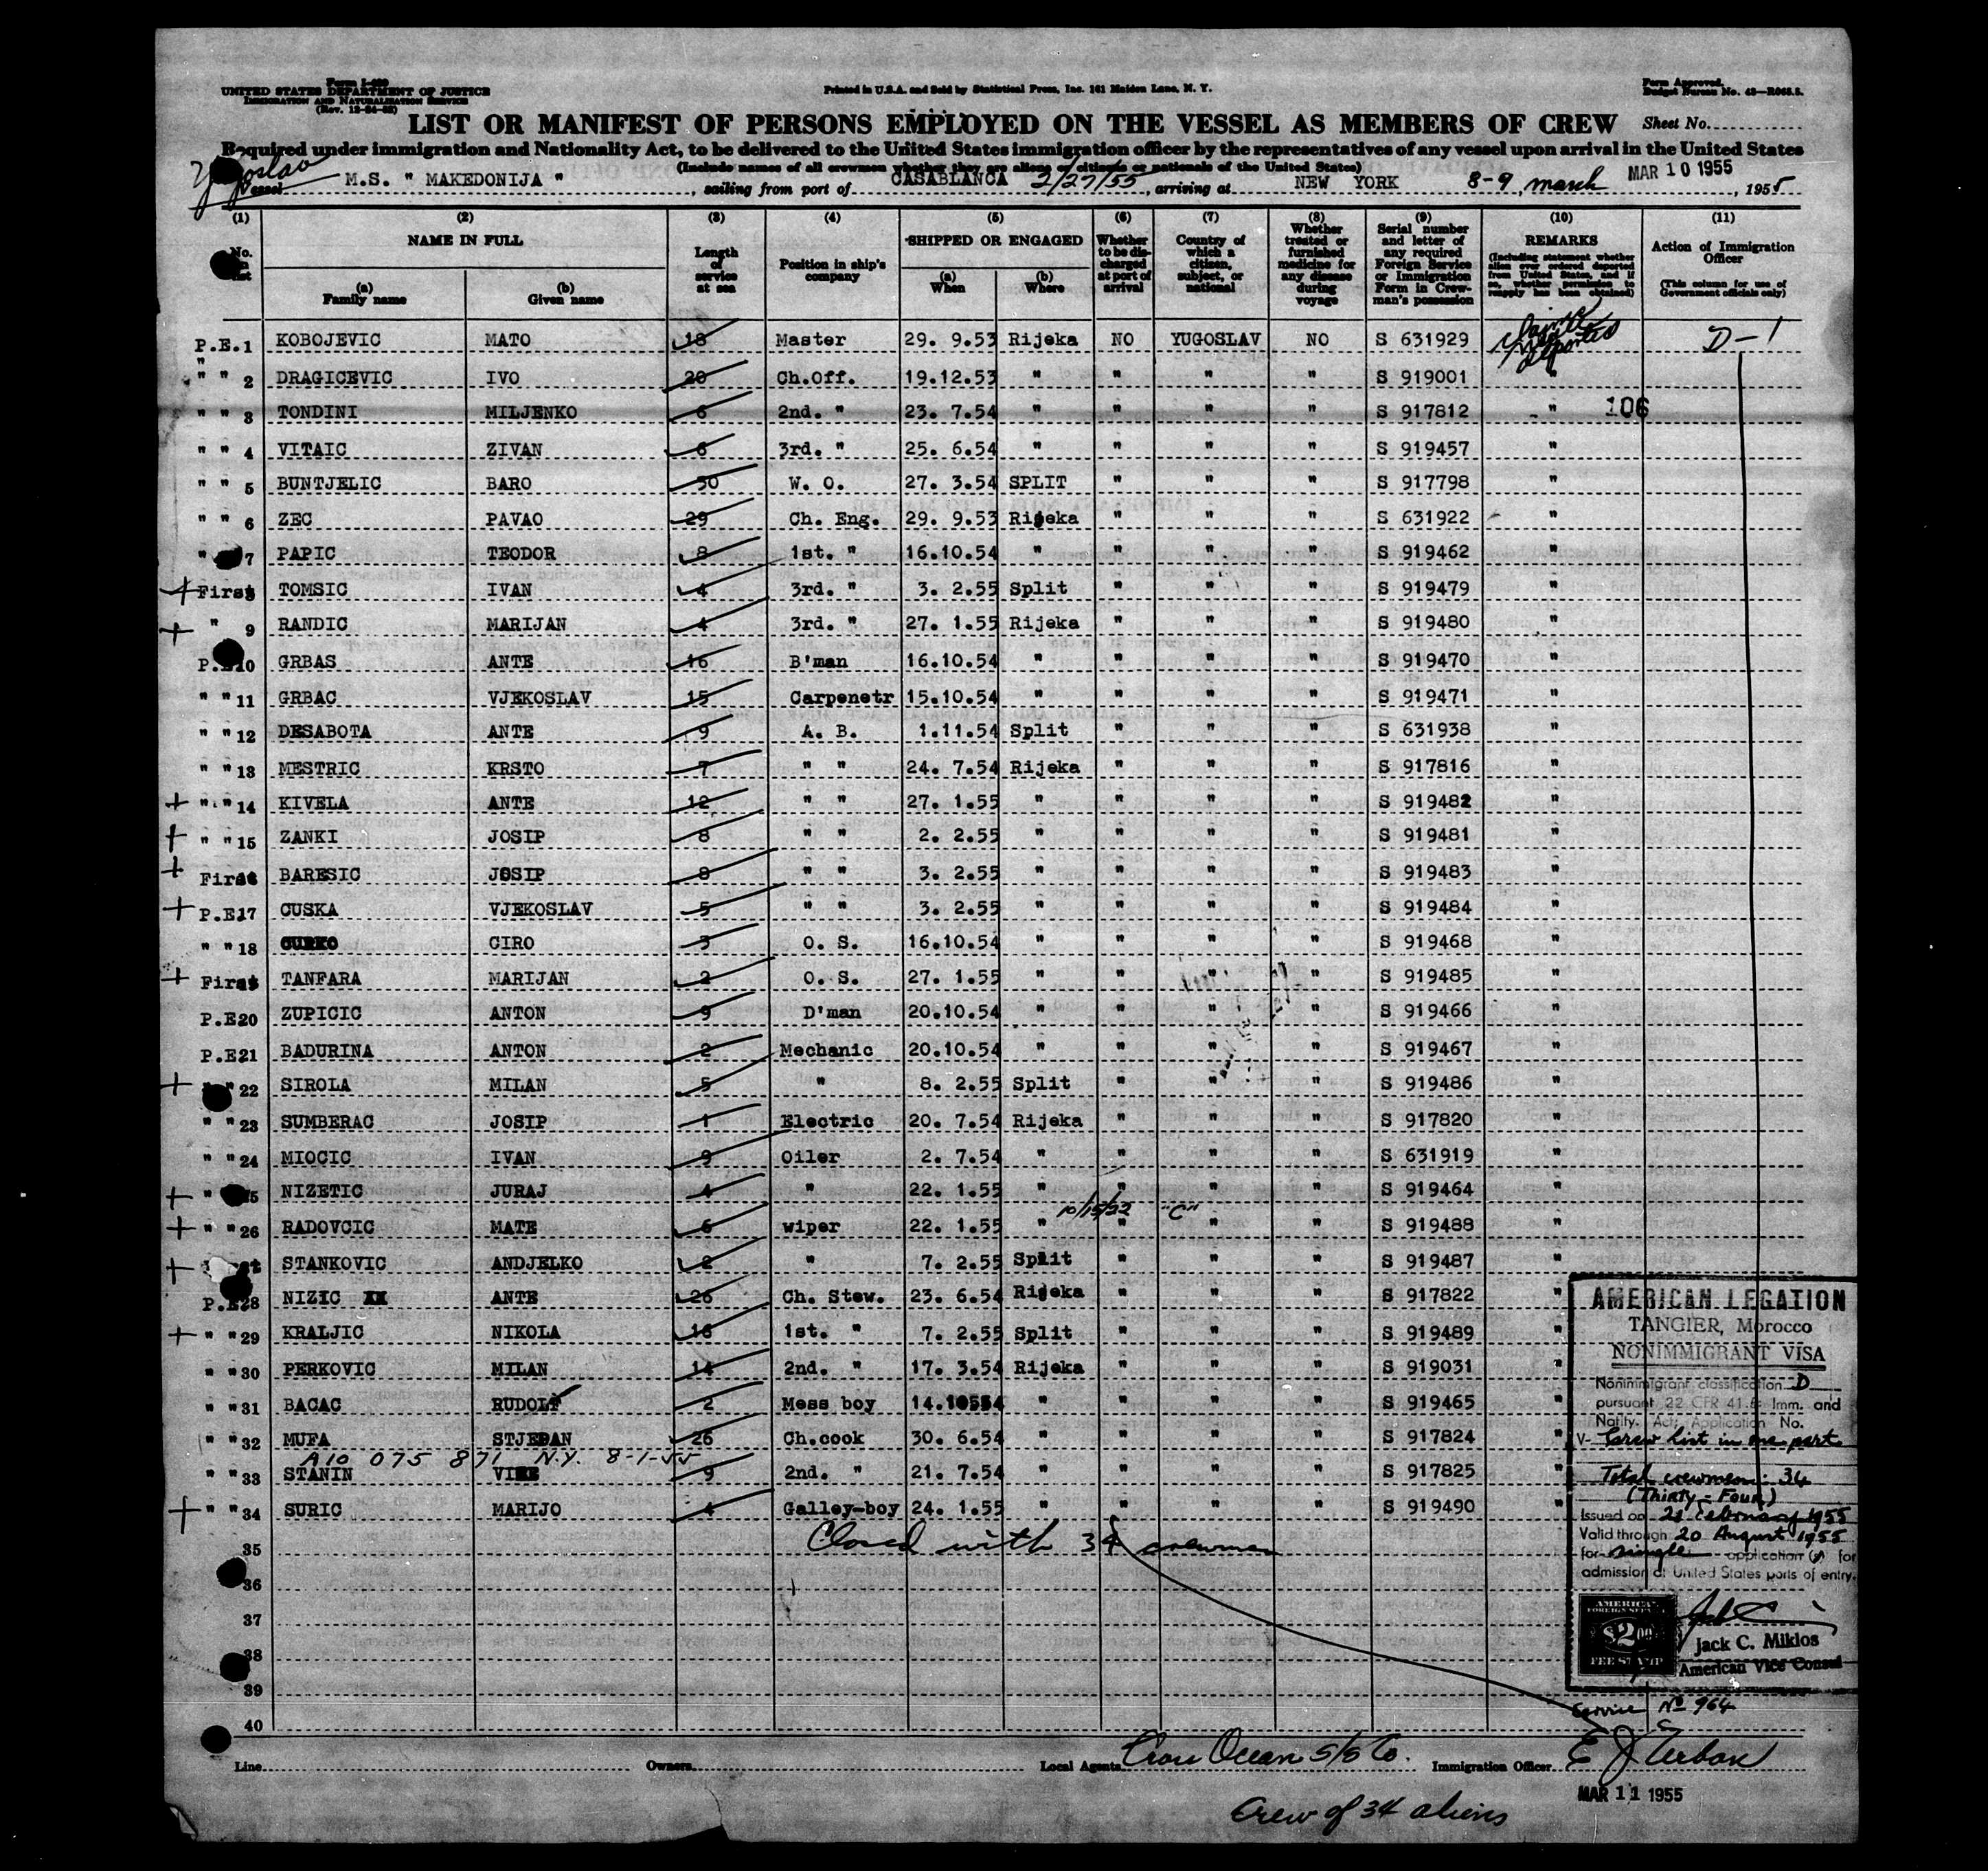 Form I-489
UNITED STATES DEPARTMENT OF JUSTICE
IMMIGRATION AND NATURALIZATION SERVICE
(Rev. 12-24-52)
Printed in U.S.A. and Sold by Statistical Press, Inc. 161 Maiden Lane, N. Y.
Form Approved.
Budget Bureau No. 43—R065.5.
LIST OR MANIFEST OF PERSONS EMPLOYED ON THE VESSEL AS MEMBERS OF CREW Sheet No.
Required under immigration and Nationality Act, to be delivered to the United States immigration officer by the representatives of any vessel upon arrival in the United States
(Include names of all crewmen whether they are aliens or citizens or nationals of the United States)
Yugoslav
Vessel M.S. " MAKEDONIJA " , sailing from port of CASABLANCA 2/27/55, arriving at NEW YORK 8-9, march MAR 10 1955, 1955
(1) (2) (3) (4) (5) (6) (7) (8) (9) (10) (11)
No. on list
NAME IN FULL
(a) Family name
(b) Given name
Length of service at sea
Position in ship's company
SHIPPED OR ENGAGED
(a) When
(b) Where
Whether to be discharged at port of arrival
Country of which a citizen, subject, or national
Whether treated or furnished medicine for any disease during voyage
Serial number and letter of any required Foreign Service or Immigration Form in Crewman's possession
REMARKS
(Including statement whether alien ever ordered deported from United States, and if so, whether permission to reapply has been obtained)
Action of Immigration Officer
(This column for use of Government officials only)
P.E.1 KOBOJEVIC MATO 18 Master 29. 9.53 Rijeka NO YUGOSLAV NO S 631929 never deported D-1
" " 2 DRAGICEVIC IVO 20 Ch.Off. 19.12.53 " " " " S 919001 "
" " 3 TONDINI MILJENKO 6 2nd. " 23. 7.54 " " " " S 917812 " 106
" " 4 VITAIC ZIVAN 6 3rd. " 25. 6.54 " " " " S 919457 "
" " 5 BUNTJELIC BARO 30 W. O. 27. 3.54 SPLIT " " " S 917798 "
" " 6 ZEC PAVAO 29 Ch. Eng. 29. 9.53 Rijeka " " " S 631922 "
" 7 PAPIC TEODOR 8 1st. " 16.10.54 " " " " S 919462 "
+ First 8 TOMSIC IVAN 4 3rd. " 3. 2.55 Split " " " S 919479 "
+ " 9 RANDIC MARIJAN 4 3rd. " 27. 1.55 Rijeka " " " S 919480 "
P.E10 GRBAS ANTE 16 B'man 16.10.54 " " " " S 919470 "
" " 11 GRBAC VJEKOSLAV 15 Carpenetr 15.10.54 " " " " S 919471 "
" " 12 DESABOTA ANTE 9 A. B. 1.11.54 Split " " " S 631938 "
" " 13 MESTRIC KRSTO 7 " " 24. 7.54 Rijeka " " " S 917816 "
+ " " 14 KIVELA ANTE 12 " " 27. 1.55 " " " " S 919482 "
+ " " 15 ZANKI JOSIP 8 " " 2. 2.55 " " " " S 919481 "
+ First BARESIC JOSIP 8 " " 3. 2.55 " " " " S 919483 "
+ P.E17 CUSKA VJEKOSLAV 5 " " 3. 2.55 " " " " S 919484 "
" " 18 CURKO CIRO 3 O. S. 16.10.54 " " " " S 919468 "
+ First TANFARA MARIJAN 2 O. S. 27. 1.55 " " " " S 919485 "
P.E20 ZUPICIC ANTON 9 D'man 20.10.54 " " " " S 919466 "
P.E21 BADURINA ANTON 2 Mechanic 20.10.54 " " " " S 919467 "
+ " 22 SIROLA MILAN 5 " 8. 2.55 Split " " " S 919486 "
" " 23 SUMBERAC JOSIP 1 Electric 20. 7.54 Rijeka " " " S 917820 "
" " 24 MIOCIC IVAN 9 Oiler 2. 7.54 " " " " S 631919 "
+ " 5 NIZETIC JURAJ 4 " 22. 1.55 " " " " S 919464 "
10/15/22 "C"
+ " " 26 RADOVCIC MATE 6 wiper 22. 1.55 " " " " S 919488 "
+ STANKOVIC ANDJELKO 2 " 7. 2.55 Split " " " S 919487 "
P.E28 NIZIC ANTE 26 Ch. Stew. 23. 6.54 Rijeka " " " S 917822 "
+ " " 29 KRALJIC NIKOLA 16 1st. " 7. 2.55 Split " " " S 919489 "
" " 30 PERKOVIC MILAN 14 2nd. " 17. 3.54 Rijeka " " " S 919031 "
" " 31 BACAC RUDOLF 2 Mess boy 14.10554 " " " " S 919465 "
" " 32 MUFA STJEPAN 26 Ch.cook 30. 6.54 " " " " S 917824 "
A10 075 871 N.Y. 8-1-55
" " 33 STANIN 9 2nd. " 21. 7.54 " " " " S 917825 "
+ " " 34 SURIC MARIJO 4 Galley-boy 24. 1.55 " " " " S 919490 "
35 Closed with 34 crewmen
36
37
38
39
40
AMERICAN LEGATION
TANGIER, Morocco
NONIMMIGRANT VISA
Nonimmigrant classification D
pursuant 22 CFR 41.5 Imm. and
Natlty. Act; Application No.
V- Crew list in one part
Total crewmen: 34
(Thirty-Four)
Issued on 21 February 1955
Valid through 20 August 1955
for single application(s) for
admission at United States ports of entry.
AMERICAN
FOREIGN SERVICE
$2.00
FEE STAMP
Jack C. Miklos
American Vice Consul
Service No 964
Line Owners Local Agents Cross Ocean S/S Co. Immigration Officer E J Urban
MAR 11 1955
Crew of 34 aliens